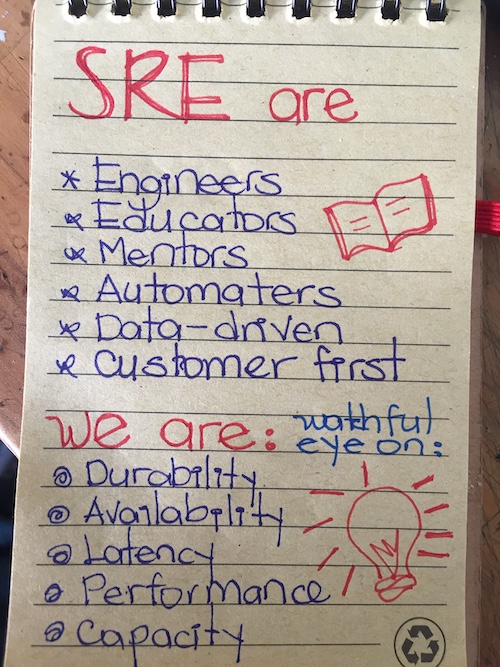 SRE are
* Engineers
* Educators
* Mentors
* Automaters
* Data-driven
* Customer first
we are: wathful
eye on:
Durability
Availability
Latency
Performance
Capacity